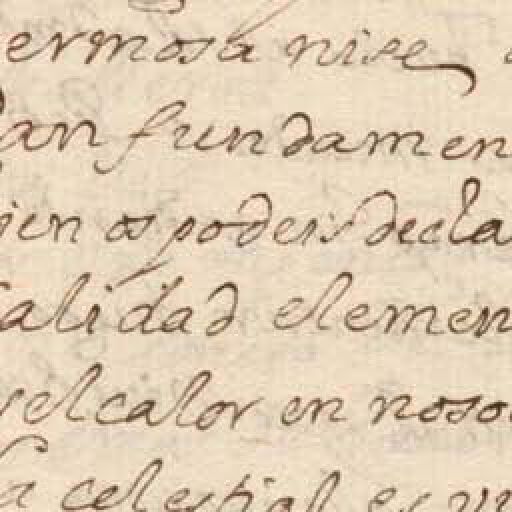 ermosa nise
an fundamen
ien os podeis decla
alidad elemen
el calor en noso
a celestial es vi